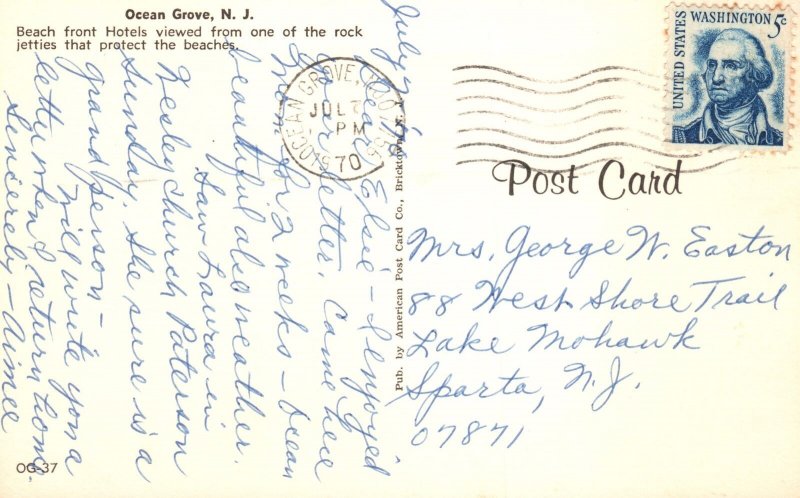 Ocean Grove, N. J.
Beach front Hotels viewed from one of the rock
jetties that protect the beaches.
July 7, 1970
Dear Elsie - I enjoyed
your letter. Came here
for 2 weeks - Ocean
beautiful also weather.
Saw Laura in
Wesley Church Paterson
Sunday. She sure is a
grand person -
Will write you a
letter when I return home.
Sincerely - Aimee
OG-37
Pub. by American Post Card Co., Bricktown, N. J.
OCEAN GROVE, N.J. 07756
JUL 7
PM
1970
UNITED STATES
WASHINGTON 5c
Post Card
Mrs. George W. Easton
88 West Shore Trail
Lake Mohawk
Sparta, N. J.
07871